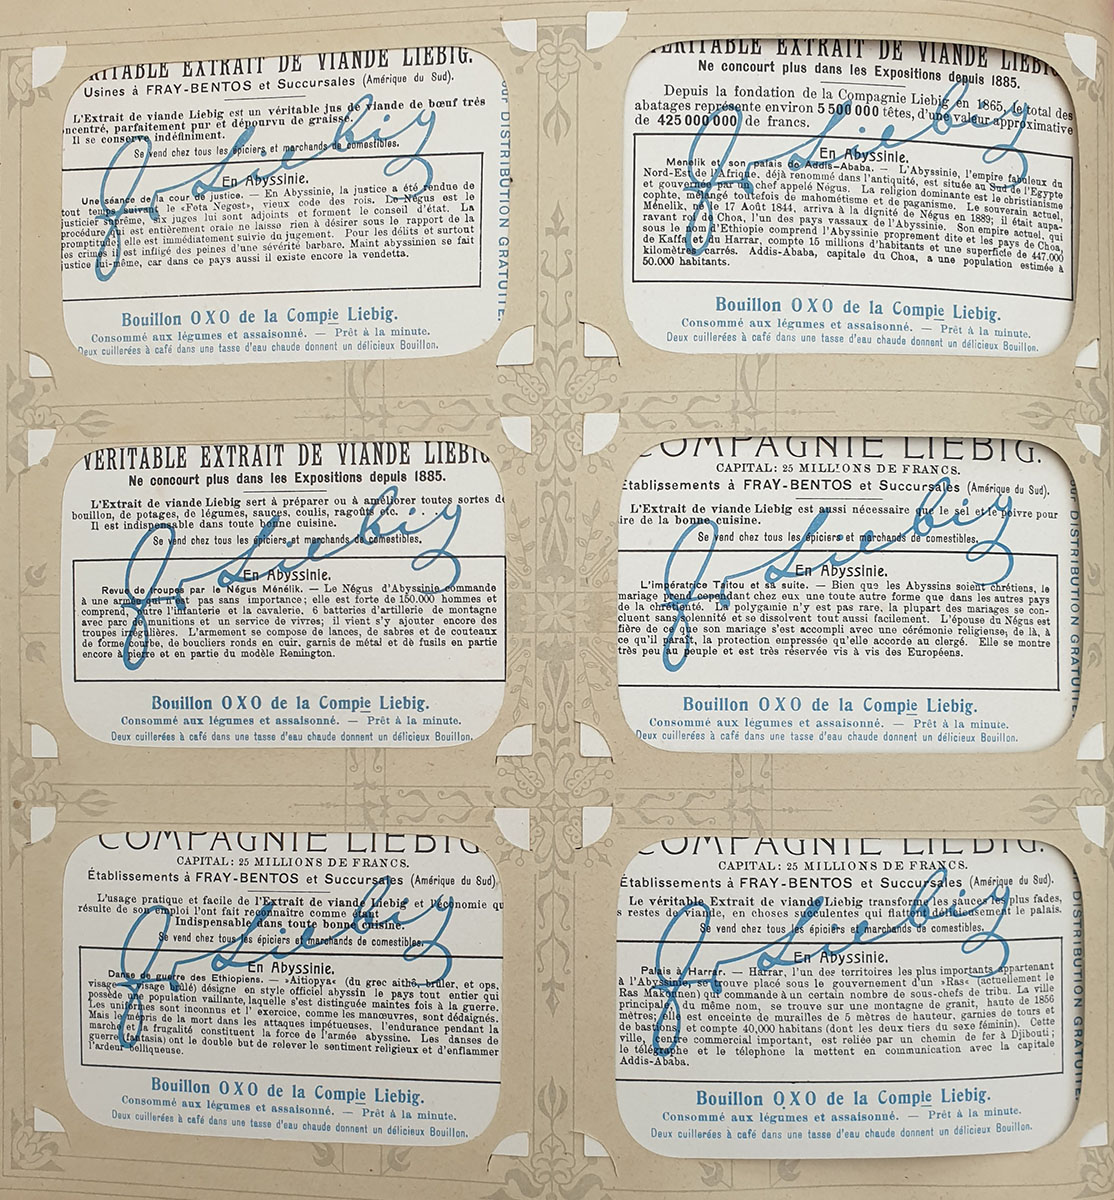 RITABLE EXTRAIT DE VIANDE LIEBIG.
Usines à FRAY-BENTOS et Succursales (Amérique du Sud).
L'Extrait de viande Liebig est un véritable jus de viande de bœuf très
ncentré, parfaitement pur et dépourvu de graisse.
Il se conserve indéfiniment.
Se vend chez tous les épiciers et marchands de comestibles.
En Abyssinie.
Une séance de la cour de justice. — En Abyssinie, la justice a été rendue de
tout temps suivant le «Feta Negost», vieux code des rois. Le Négus est le
justicier suprême, six juges lui sont adjoints et forment le conseil d'état. La
procédure qui est entièrement orale ne laisse rien à désirer sous le rapport de la
promptitude, elle est immédiatement suivie du jugement. Pour les délits et surtout
les crimes il est infligé des peines d'une sévérité barbare. Maint abyssinien se fait
justice lui-même, car dans ce pays aussi il existe encore la vendetta.
Bouillon OXO de la Compie Liebig.
Consommé aux légumes et assaisonné. — Prêt à la minute.
Deux cuillerées à café dans une tasse d'eau chaude donnent un délicieux Bouillon.
our DISTRIBUTION GRATUITE.
Liebig
ERITABLE EXTRAIT DE VIANDE LIEBIG
Ne concourt plus dans les Expositions depuis 1885.
Depuis la fondation de la Compagnie Liebig en 1865, le total des
abatages représente environ 5 500 000 têtes, d'une valeur approximative
de 425 000 000 de francs.
En Abyssinie.
Ménélik et son palais de Addis-Ababa. — L'Abyssinie, l'empire fabuleux du
Nord-Est de l'Afrique, déjà renommé dans l'antiquité, est située au Sud de l'Egypte
et gouverné par un chef appelé Négus. La religion dominante est le christianisme
cophte, mélangé toutefois de mahométisme et de paganisme. Le souverain actuel,
Ménélik, né le 17 Août 1844, arriva à la dignité de Négus en 1889; il était aupa-
ravant roi de Choa, l'un des pays vassaux de l'Abyssinie. Son empire actuel, qui
sous le nom d'Ethiopie comprend l'Abyssinie proprement dite et les pays de Choa,
de Kaffa et du Harrar, compte 15 millions d'habitants et une superficie de 447.000
kilomètres carrés. Addis-Ababa, capitale du Choa, a une population estimée à
50.000 habitants.
Bouillon OXO de la Compie Liebig.
Consommé aux légumes et assaisonné. — Prêt à la minute.
Deux cuillerées à café dans une tasse d'eau chaude donnent un délicieux Bouillon.
Liebig
VÉRITABLE EXTRAIT DE VIANDE LIEBIG
Ne concourt plus dans les Expositions depuis 1885.
L'Extrait de viande Liebig sert à préparer ou à améliorer toutes sortes de
bouillon, de potages, de légumes, sauces, coulis, ragoûts etc. . . .
Il est indispensable dans toute bonne cuisine.
Se vend chez tous les épiciers et marchands de comestibles.
En Abyssinie.
Revue de troupes par le Négus Ménélik. — Le Négus d'Abyssinie commande
à une armée qui n'est pas sans importance; elle est forte de 150.000 hommes et
comprend, outre l'infanterie et la cavalerie, 6 batteries d'artillerie de montagne
avec parc à munitions et un service de vivres; il vient s'y ajouter encore des
troupes irrégulières. L'armement se compose de lances, de sabres et de couteaux
de forme courbe, de boucliers ronds en cuir, garnis de métal et de fusils en partie
encore à pierre et en partie du modèle Remington.
Bouillon OXO de la Compie Liebig.
Consommé aux légumes et assaisonné. — Prêt à la minute.
Deux cuillerées à café dans une tasse d'eau chaude donnent un délicieux Bouillon.
Liebig
COMPAGNIE LIEBIG.
CAPITAL: 25 MILLIONS DE FRANCS.
Établissements à FRAY-BENTOS et Succursales (Amérique du Sud).
L'Extrait de viande Liebig est aussi nécessaire que le sel et le poivre pour
ire de la bonne cuisine.
Se vend chez tous les épiciers et marchands de comestibles.
En Abyssinie.
L'impératrice Taïtou et sa suite. — Bien que les Abyssins soient chrétiens, le
mariage prend cependant chez eux une toute autre forme que dans les autres pays
de la chrétienté. La polygamie n'y est pas rare, la plupart des mariages se con-
cluent sans solennité et se dissolvent tout aussi facilement. L'épouse du Négus est
fière de ce que son mariage s'est accompli avec une cérémonie religieuse; de là, à
ce qu'il paraît, la protection empressée qu'elle accorde au clergé. Elle se montre
très peu au peuple et est très réservée vis à vis des Européens.
Bouillon OXO de la Compie Liebig.
Consommé aux légumes et assaisonné. — Prêt à la minute.
Deux cuillerées à café dans une tasse d'eau chaude donnent un délicieux Bouillon.
our DISTRIBUTION GRATUITE.
Liebig
COMPAGNIE LIEBIG
CAPITAL: 25 MILLIONS DE FRANCS.
Établissements à FRAY-BENTOS et Succursales (Amérique du Sud)
L'usage pratique et facile de l'Extrait de viande Liebig et l'économie qu
résulte de son emploi l'ont fait reconnaître comme étant
Indispensable dans toute bonne cuisine.
Se vend chez tous les épiciers et marchands de comestibles.
En Abyssinie.
Danse de guerre des Ethiopiens. — »Aitiopya« (du grec aithô, brûler, et ops,
visage = visage brûlé) désigne en style officiel abyssin le pays tout entier qui
possède une population vaillante, laquelle s'est distinguée maintes fois à la guerre.
Les uniformes sont inconnus et l' exercice, comme les manœuvres, sont dédaignés.
Mais le mépris de la mort dans les attaques impétueuses, l'endurance pendant la
marche et la frugalité constituent la force de l'armée abyssine. Les danses de
guerre (fantasia) ont le double but de relever le sentiment religieux et d'enflammer
l'ardeur belliqueuse.
Bouillon OXO de la Compie Liebig.
Consommé aux légumes et assaisonné. — Prêt à la minute.
Deux cuillerées à café dans une tasse d'eau chaude donnent un délicieux Bouillon.
Liebig
COMPAGNIE LIEBIG.
CAPITAL: 25 MILLIONS DE FRANCS.
Établissements à FRAY-BENTOS et Succursales (Amérique du Sud).
Le véritable Extrait de viande Liebig transforme les sauces les plus fades,
s restes de viande, en choses succulentes qui flattent délicieusement le palais.
Se vend chez tous les épiciers et marchands de comestibles.
En Abyssinie.
Palais à Harrar. — Harrar, l'un des territoires les plus importants appartenant
à l'Abyssinie, se trouve placé sous le gouvernement d'un »Ras« (actuellement le
Ras Makonnen) qui commande à un certain nombre de sous-chefs de tribu. La ville
principale du même nom, se trouve sur une montagne de granit, haute de 1856
mètres; elle est enceinte de murailles de 5 mètres de hauteur, garnies de tours et
de bastions, et compte 40,000 habitans (dont les deux tiers du sexe féminin). Cette
ville, centre commercial important, est reliée par un chemin de fer à Djibouti;
le télégraphe et le telephone la mettent en communication avec la capitale
Addis-Ababa.
Bouillon OXO de la Compie Liebig.
Consommé aux légumes et assaisonné. — Prêt à la minute.
Deux cuillerées à café dans une tasse d'eau chaude donnent un délicieux Bouillon.
DISTRIBUTION GRATUITE
Liebig